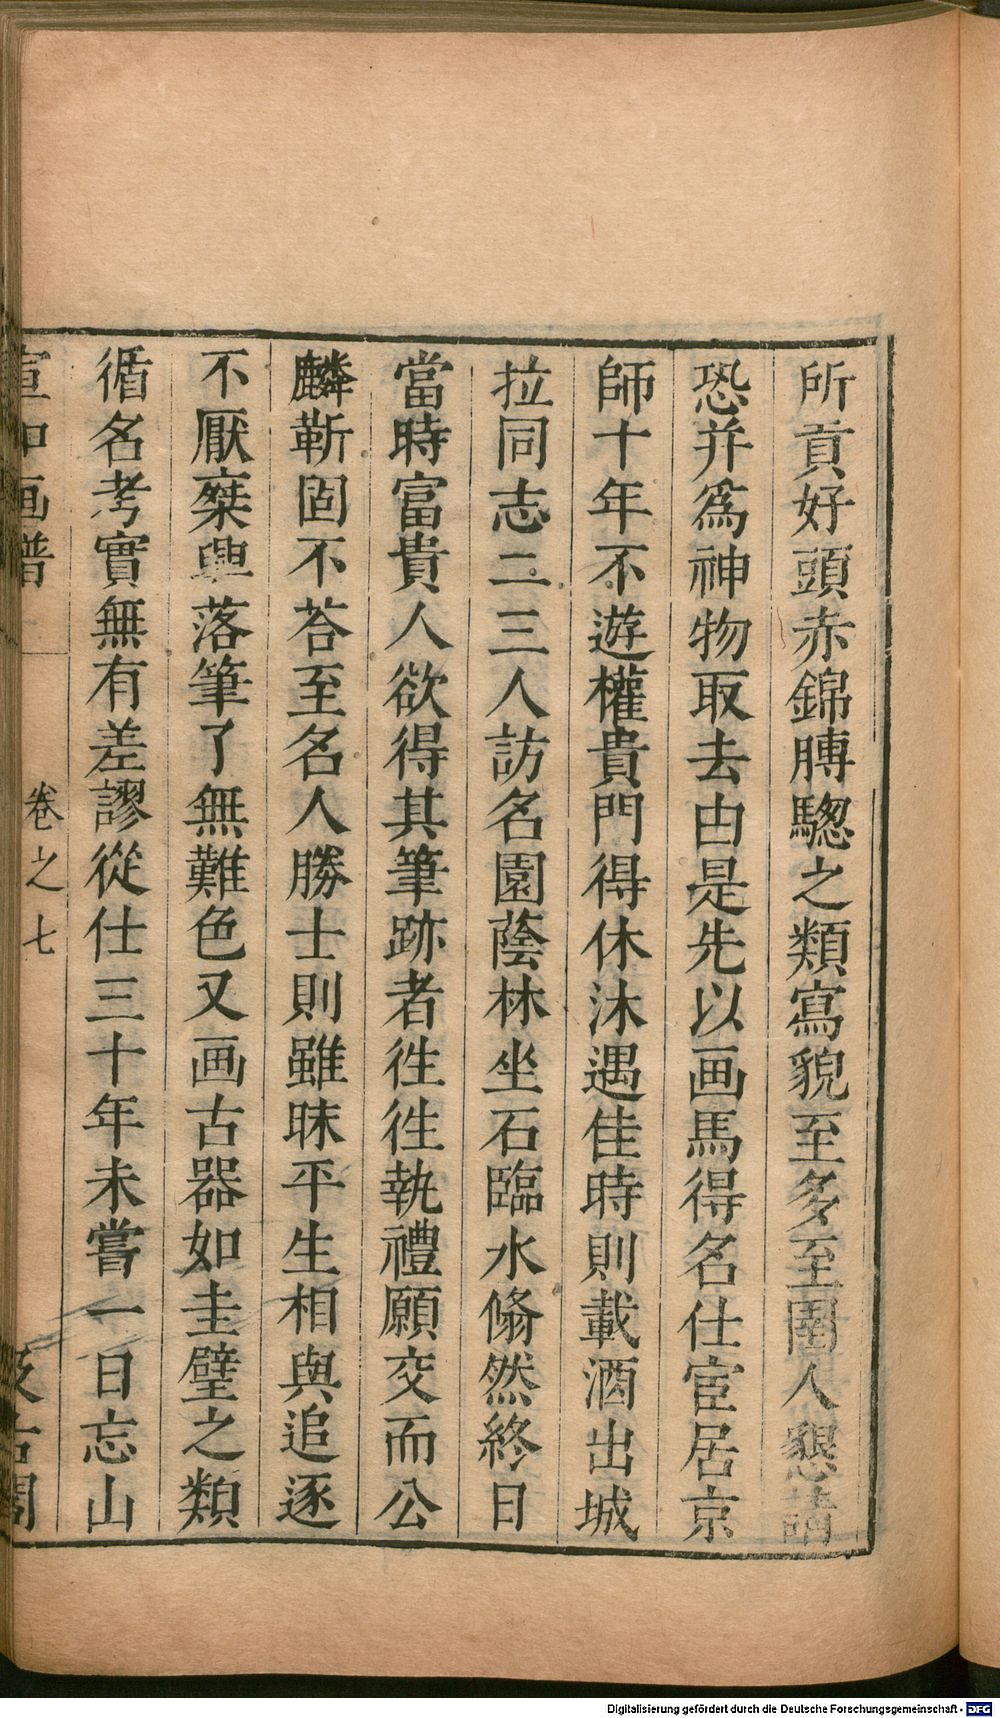 所貢好頭赤錦膊驄之類寫貌至多至圉人懇請
恐并爲神物取去由是先以画馬得名仕宦居京
師十年不遊權貴門得休沐遇佳時則載酒出城
拉同志二三人訪名園蔭林坐石臨水翛然終日
當時富貴人欲得其筆跡者徃徃執禮願交而公
麟靳固不荅至名人勝士則雖昧平生相與追逐
不厭椉興落筆了無難色又画古器如圭璧之類
循名考實無有差謬從仕三十年未嘗一日忘山
宣和画譜 卷之七 汲古閣
Digitalisierung gefördert durch die Deutsche Forschungsgemeinschaft - DFG